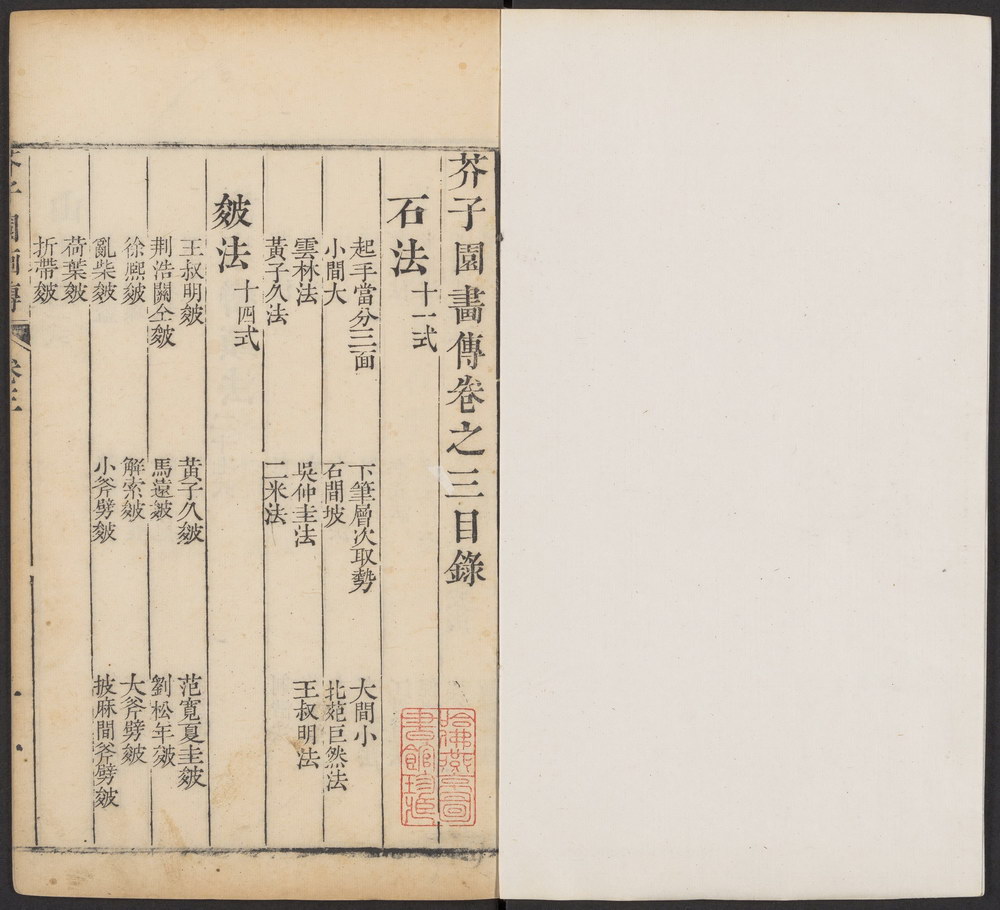 芥子園畫傳卷之三目錄
石法 十一式
起手當分三面 下筆層次取勢 大間小
小間大 石間坡 北苑巨然法
雲林法 吳仲圭法 王叔明法
黃子久法 二米法
皴法 十四式
王叔明皴 黃子久皴 范寬夏圭皴
荆浩關仝皴 馬遠皴 劉松年皴
徐熙皴 解索皴 大斧劈皴
亂柴皴 小斧劈皴 披麻間斧劈皴
荷葉皴
折帶皴
芥子園畫傳 卷三
哈佛燕京圖書館珍藏